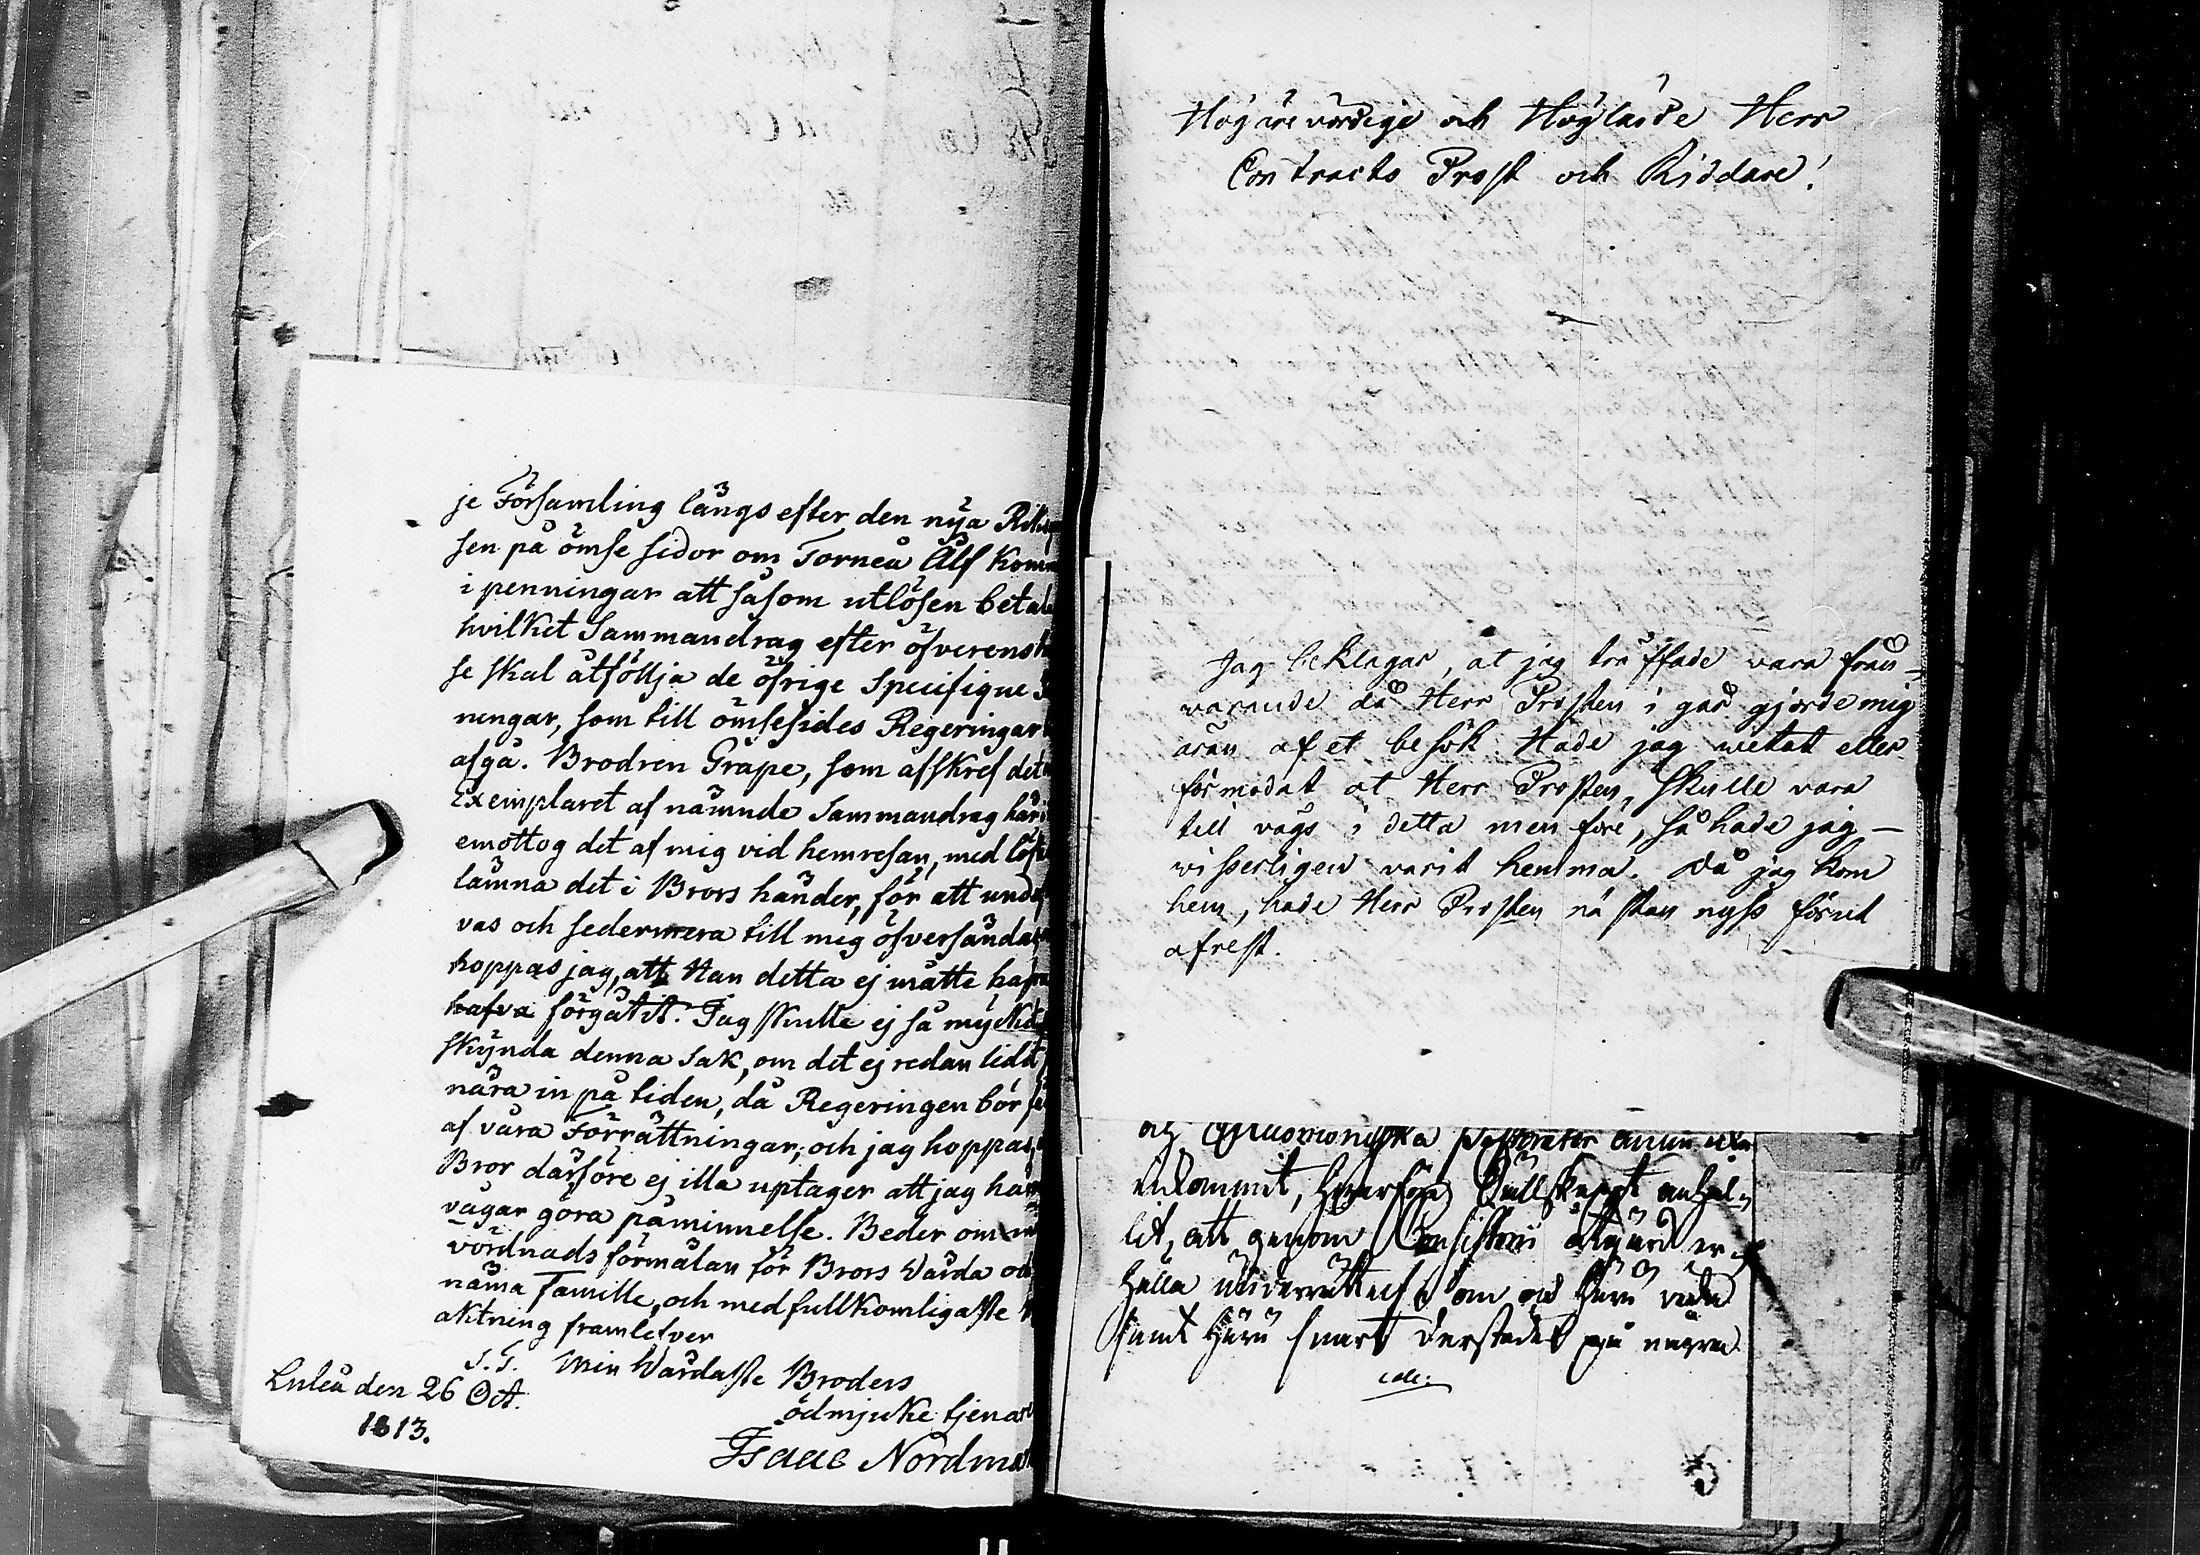 je Församling längs efter den nya Riks
sen på ömse sidor om Torneå Älf Komm
i penningar att såsom utlösen betal
hvilket Sammandrag efter öfverens
se skal åtföllja de öfrige Specifique
ningar, som till ömsesides Regeringar
afgå. Brodren Grape, som afskref det
Exemplaret af nämnde Sammandrag här
emottog det af mig vid hemresan, med löf
lämna det i Brors händer, för att under
vas och sedermera till mig öfversändas
hoppas jag, att Han detta ej måtte haf
hafva förgätit. Jag skulle ej så mycket
skynda denna sak, om det ej redan lidit
nära in på tiden, då Regeringen bör
af våra Förrättningar; och jag hoppas,
Bror därföre ej illa uptager att jag här
vågar göra påminnelse. Beder om
vördnads förmälan för Brors Wärda och
näma Famille, och med fullkomligaste
aktning framlefver
S. T. Min Wärdaste Broders
Luleå den 26 Oct. ödmjuke tjenare
1813.
Isaac Nordma
Högärevördige och Höglärde Herr
Contracts Prost och Riddare!
Jag beklagar, at jag träffade vara från-
varande då Herr Prosten i går gjorde mig
äran af et besök. Hade jag wetat eller
förmodat at Herr Prosten, skulle vara
till vägs i detta men före, så hade jag —
visserligen varit hemma. Då jag kom
hem, hade Herr Prosten nästan nyss förut
afrest.
inkommit, Sällskapet anhål-
lit, att genom Consistorii åtgärd er-
hålla underrättelse om
samt huru snart derstädes på några